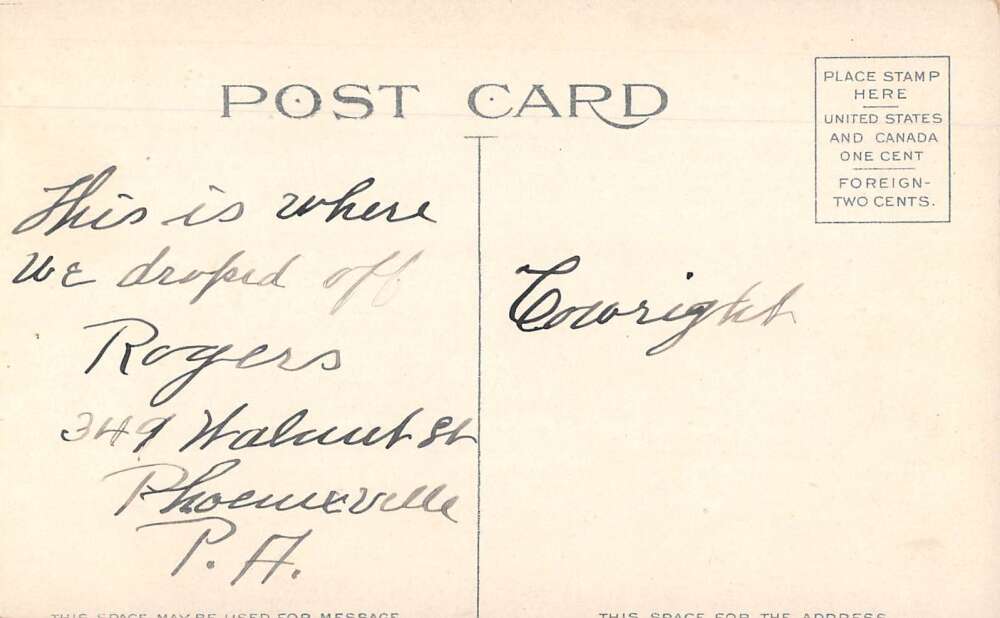 POST CARD
PLACE STAMP
HERE
UNITED STATES
AND CANADA
ONE CENT
FOREIGN-
TWO CENTS.
This is where
We droped off
Rogers
349 Walnut St
Phoenixville
P. A.
Cowright
THIS SPACE MAY BE USED FOR MESSAGE
THIS SPACE FOR THE ADDRESS